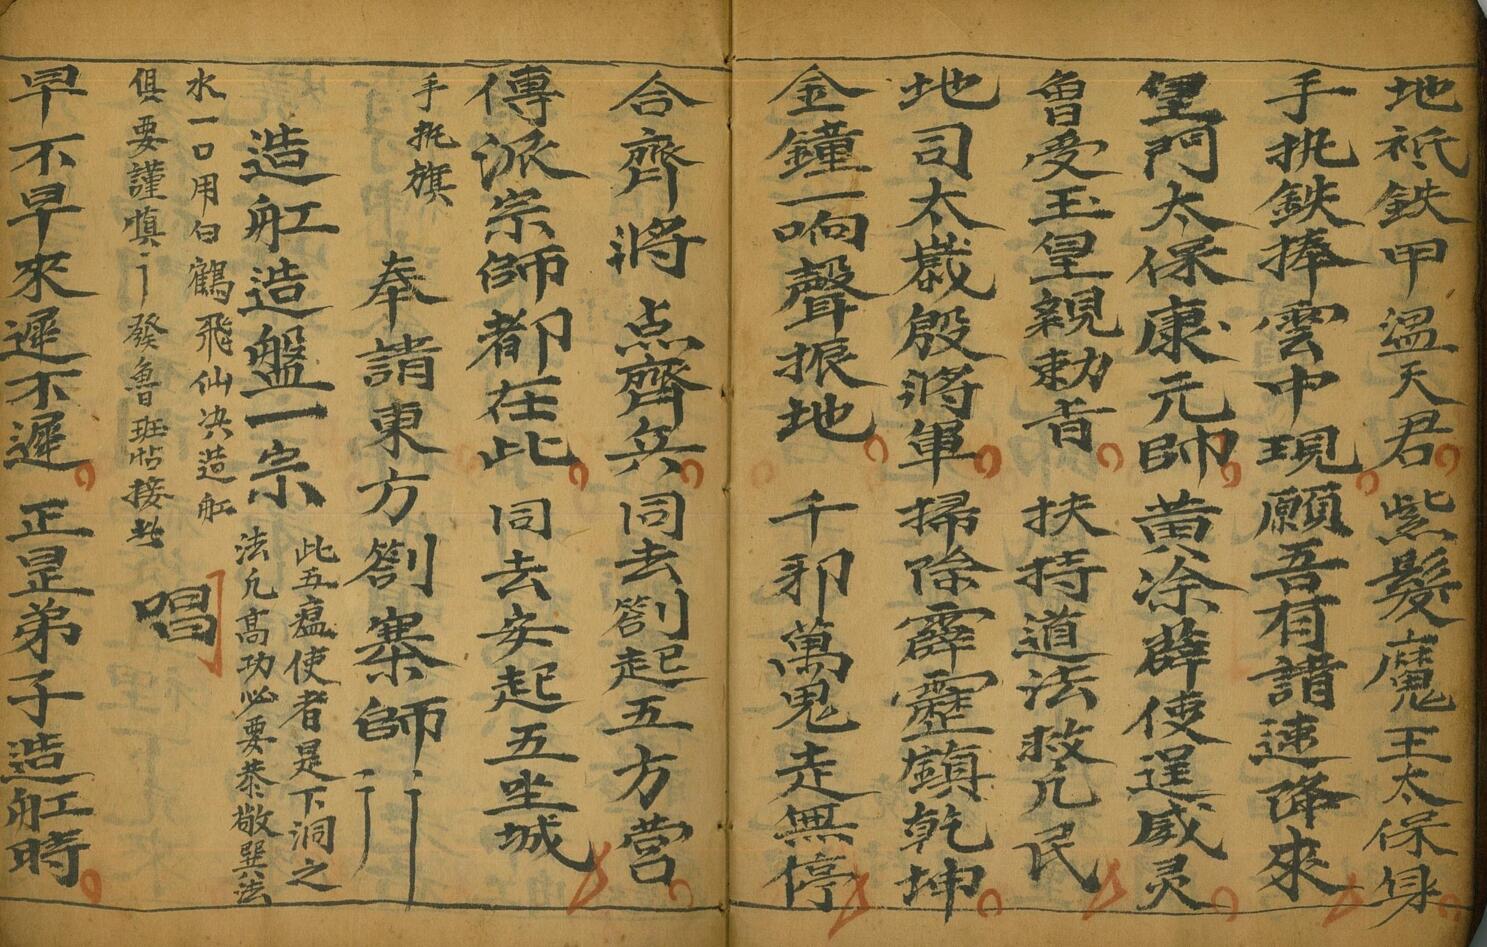 地祇鉄甲温天君 紫髮魔王太保身
手执鉄捧雲中現 願吾有請速降來
皇門太保康元帥 黄涂薜使逞威灵
曾受玉皇親勅旨 扶持道法救凢民
地司太歲殷將軍 掃除霹靂鎮乾坤
金鐘一响聲振地 千邪萬鬼走無停
合齊將 点齊兵 同去劄起五方营
傳派宗師都在此 同去安起五坐城
手执旗 奉請東方劄寨師
造舡造盤一宗 此五瘟使者是下洞之
法凢高功必要恭敬巽法
水一口用白鶴飛仙决造舡 唱
俱要謹慎 發魯班帖接
早不早來遲不遲 正是弟子造舡時